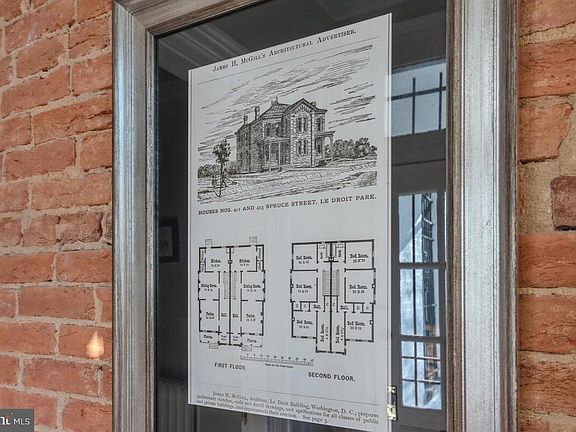 James H. McGill's Architectural Advertiser.
HOUSES NOS. 411 AND 413 SPRUCE STREET, LE DROIT PARK.
Kitchen. Kitchen.
Dining Room. Dining Room.
Parlor. Hall. Hall. Parlor.
Bed Room. Bed Room.
Bed Room. Bed Room.
Bed Room. Bed Room.
Bed Room. Bed Room.
FIRST FLOOR.
SECOND FLOOR.
James H. McGill, Architect, Le Droit Building, Washington, D. C., prepares
preliminary sketches, scale and detail drawings, and specifications for all classes of public
and private buildings, and superintends their erection. See page 3.
MLS